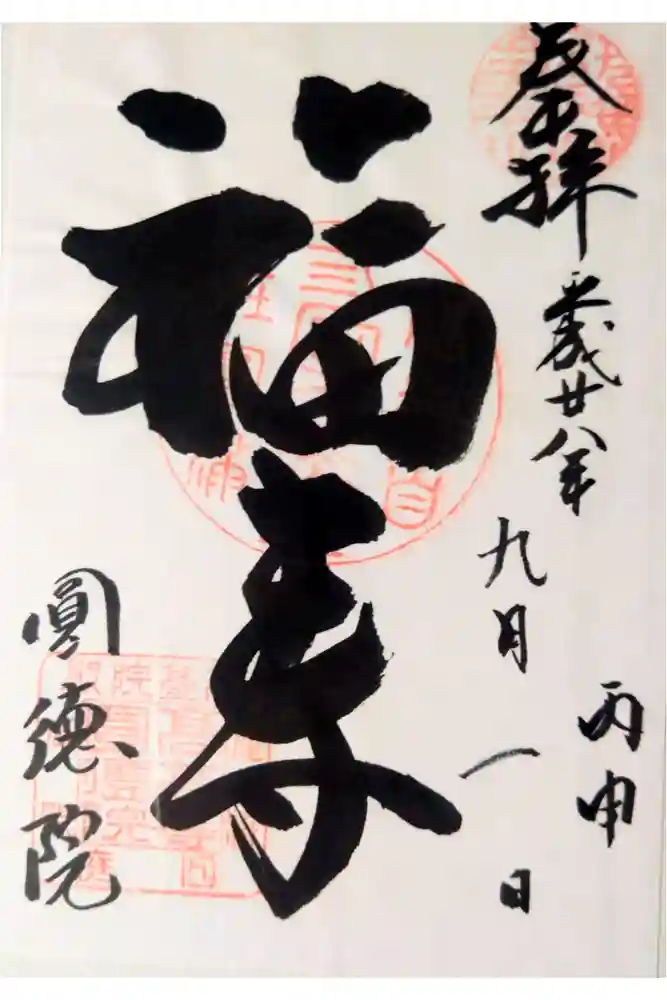 奉拝
平成廿八年
丙申
九月一日
福寿
圓徳院